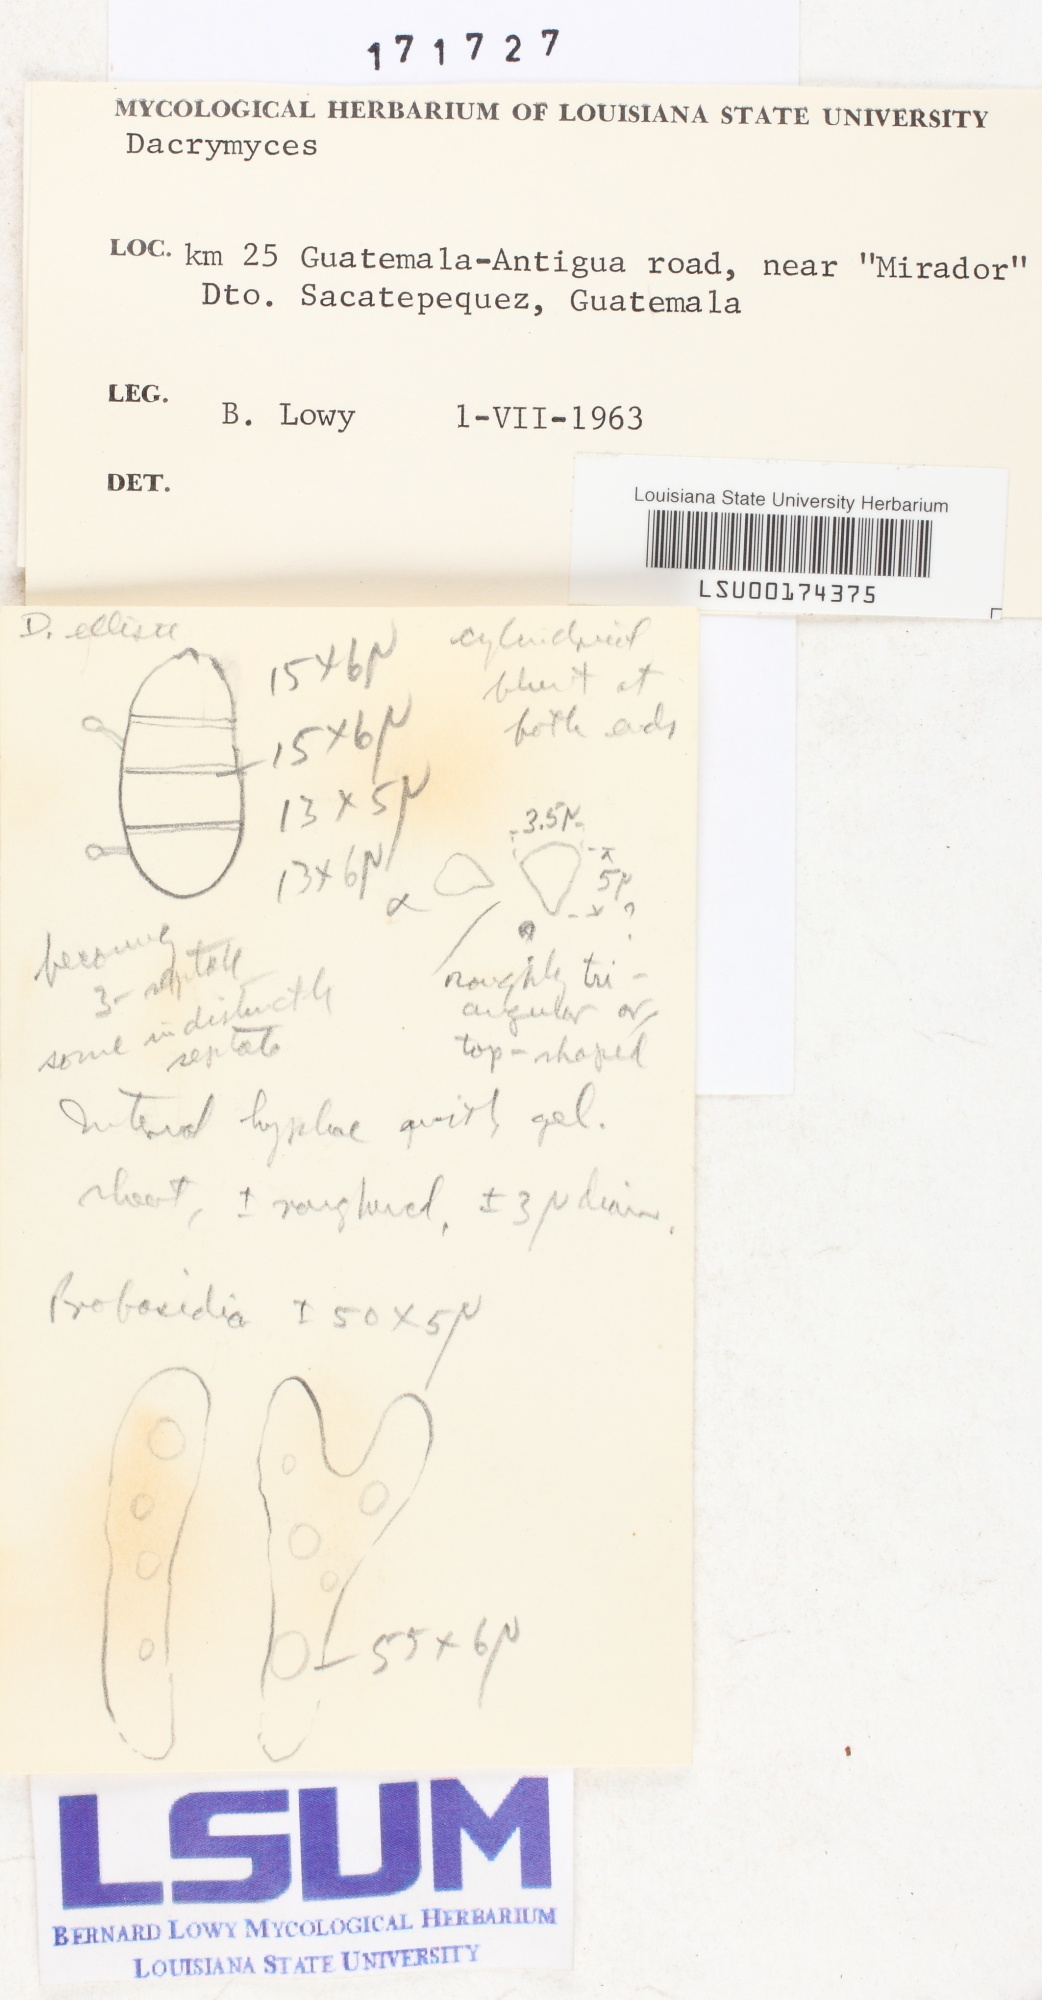 171727
MYCOLOGICAL HERBARIUM OF LOUISIANA STATE UNIVERSITY
Dacrymyces
LOC. km 25 Guatemala-Antigua road, near "Mirador"
Dto. Sacatepequez, Guatemala
LEG. B. Lowy 1-VII-1963
DET.
Louisiana State University Herbarium
LSU00174375
D. ellisii
15 × 6μ
15 × 6μ
13 × 5μ
13 × 6μ
cylindrical
blunt at
both ends
3.5μ
5μ
?
becoming
3-septate
some indistinctly
septate
roughly tri-
angular or
top-shaped
Internal hyphae with gel.
sheat, ± roughened, ± 3μ diam.
Probasidia ± 50 × 5μ
55 × 6μ
LSUM
BERNARD LOWY MYCOLOGICAL HERBARIUM
LOUISIANA STATE UNIVERSITY